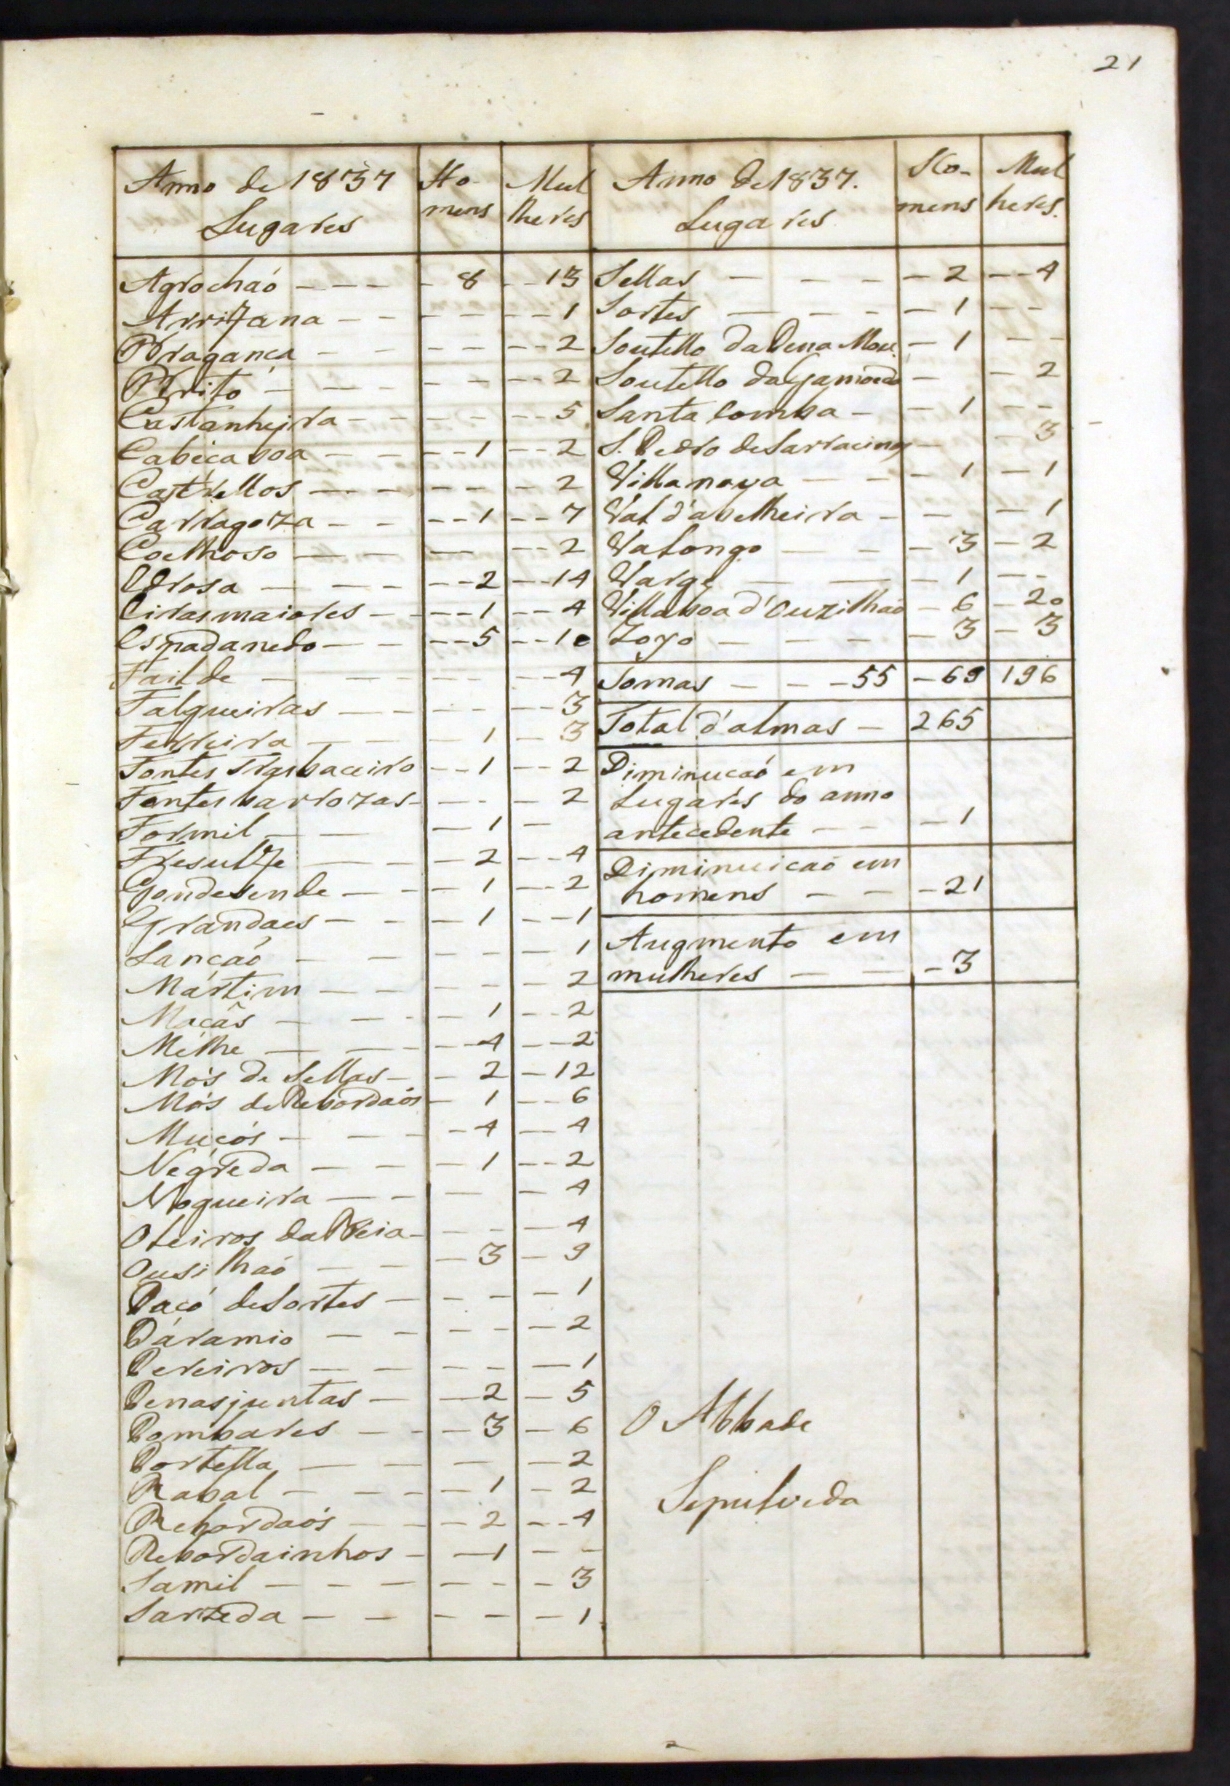 21
Anno de 1837 Ho- Mul
Lugares mens lheres
Agrochaó - - - - 8 - - 13
Arrifana - - - - - - - 1
Bragança - - - - - 2
Brito - - - - - 2
Castanheira - - - - - - 5
Cabeça boa - - - - 1 - - 2
Castrellos - - - - - - - 2
Carragoza - - - - 1 - - 7
Coelhoso - - - - - - 2
Edrosa - - - - - - 2 - - 14
Eirasmaiores - - - - 1 - - 4
Espadanedo - - - - 5 - - 10
Failde - - - - - - - 4
Falgueiras - - - - - - - 3
Ferreira - - - 1 - 3
Fontes Trasbaceiro - - 1 - - 2
Fontes barrozas - - - - 2
Formil - - - 1 -
Fresulfe - - - 2 - - 4
Gondesende - - - 1 - - 2
Grandaes - - - 1 - - 1
Lançaó - - - - - - 1
Mártim - - - - - - 2
Maçãs - - - - 1 - - 2
Mélhe - - - - 4 - - 2
Mós de Sellas - - 2 - 12
Mós de Rebordaós - 1 - - 6
Muçós - - - - 4 - - 4
Negreda - - - - 1 - - 2
Nogueira - - - - - 4
Oteiros da Veia - - - - 4
Ousilhaó - - - 3 - 9
Paçó de Sortes - - - - 1
Páramio - - - - - 2
Pereiros - - - - - 1
Penasjuntas - - 2 - 5
Pombares - - - 3 - 6
Portella - - - - - 2
Rabal - - - - 1 - 2
Rebordaós - - - 2 - - 4
Rebordainhos - - 1 - -
Samil - - - - - - - 3
Sarzeda - - - - - 1
Anno de 1837. Ho- Mul
Lugares mens heres.
Sellas - - - - - 2 - - 4
Sortes - - - - - 1 - -
Soutello da Pena Mou. - 1 - -
Soutello da Gamoeda - - 2
Santa Comba - - 1 - -
S. Pedro de Sarracinos - - 3
Villa nova - - - 1 - 1
Val d'abelheira - - - 1
Valongo - - - 3 - 2
Varge - - - 1 - -
Villa boa d'Ouzilhaó - 6 - 20
Zoyo - - - - - 3 - 3
Somas - - - 55 - 69 196
Total d'almas - 265
Diminucaó em
Lugares do anno
antecedente - - - 1
Diminuicaó em
homens - - - 21
Augmento em
mulheres - - - 3
O Abbade
Sepulveda